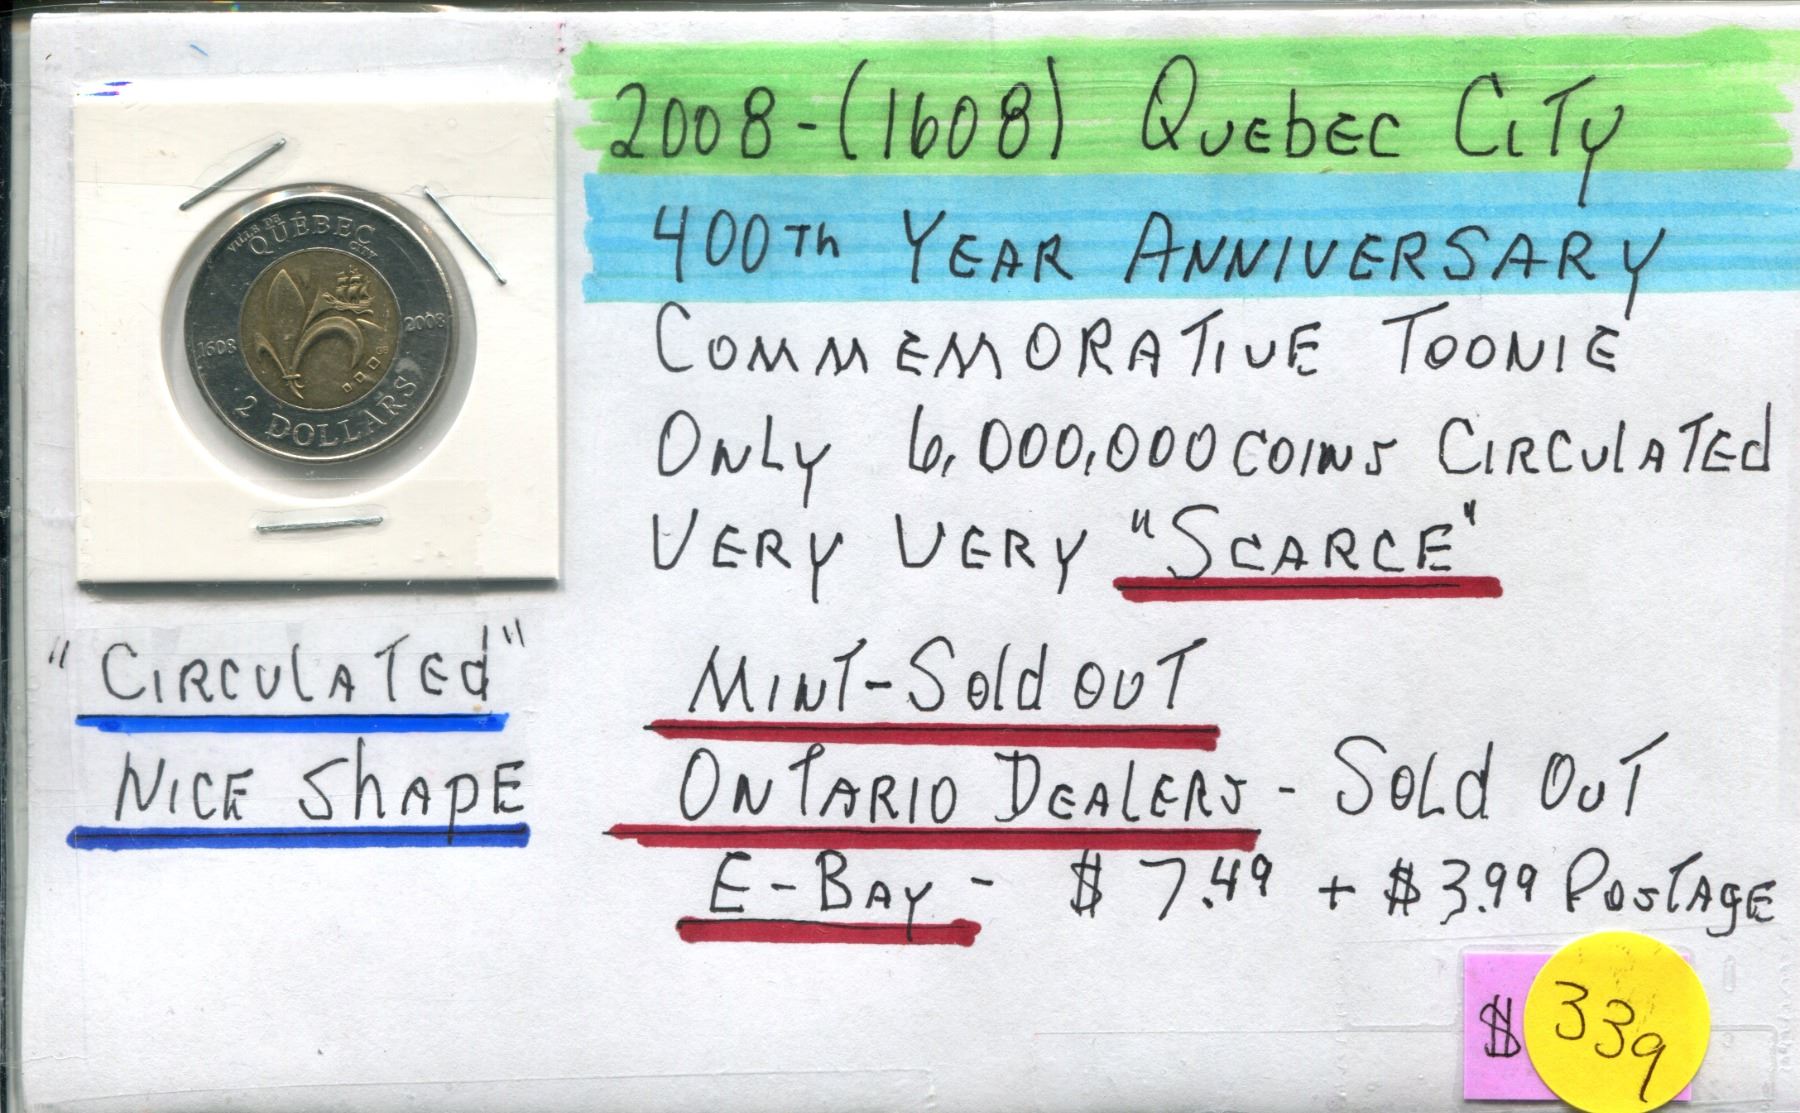 VILLE DE
QUÉBEC
CITY
1608
2008
2 DOLLARS
2008-(1608) QUEbEC CiTy
400Th YEAR ANNIVERSARY
COMMEMORATIVE TOONIE
ONLY 6,000,000 COINS CIRCULATEd
VERY VERY "SCARCE"
"CIRCULATEd"
NICE ShAPE
MINT-Sold OUT
ONTARIO DEALERS - SOLd OUT
E-BAY - $7.49 + $3.99 POSTAgE
$ 339